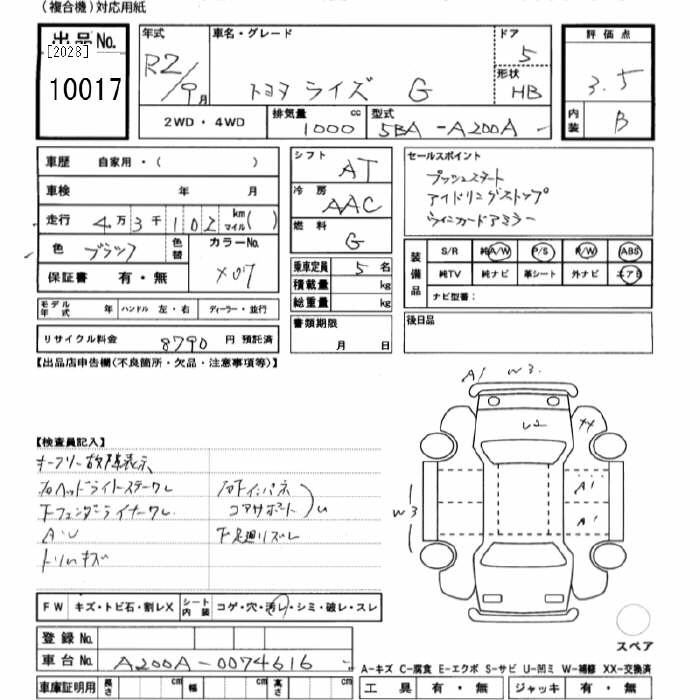 (複合機)対応用紙
出品No.
[2028]
10017
年式
R2/9月
車名・グレード
トヨタ ライズ G
ドア
5
形状
HB
評価点
3.5
内装
B
2WD・4WD
排気量 1000 cc
型式
5BA-A200A
車歴 自家用・( )
車検 年 月
走行 4万3千102 km マイル( )
色 ブラック 色替
カラーNo.
X07
保証書 有・無
シフト
AT
冷房
AAC
燃料
G
セールスポイント
プッシュスタート
アイドリングストップ
ウインカードアミラー
乗車定員 5名
積載量 kg
総重量 kg
装備品
S/R 純A/W P/S P/W ABS
純TV 純ナビ 革シート 外ナビ エアB
ナビ型番:
モデル年式 年 ハンドル 左・右 ディーラー・並行
リサイクル料金 8790 円 預託済
書類期限
月 日
後日品
【出品店申告欄(不良箇所・欠品・注意事項等)】
A1 W3
U2 XX
W3
A1
A1
【検査員記入】
故障表示
ヘッドライトステーワレ
フェンダーライナーワレ
インパネ
コアサポート
AU
下廻リズレ
キズ
FW キズ・トビ石・割レX シート内装 コゲ・穴・汚レ・シミ・破レ・スレ
登録No.
車台No. A200A-0074616
車庫証明用 長さ cm 幅 cm 高さ cm
スペア
A-キズ C-腐食 E-エクボ S-サビ U-凹ミ W-補修 XX-交換済
工具 有・無 ジャッキ 有・無